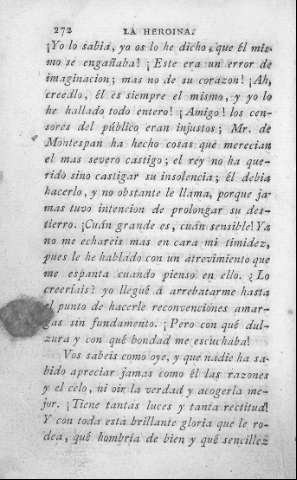 272 LA HEROINA.
¡Yo lo sabia, yo os lo he dicho, que él mis-
mo se engañaba! ¡Este era un error de
imaginacion; mas no de su corazon! ¡Ah,
creedlo, él es siempre el mismo, y yo lo
he hallado todo entero! ¡Amigo! los cen-
sores del público eran injustos; Mr. de
Montespan ha hecho cosas que merecian
el mas severo castigo; el rey no ha que-
rido sino castigar su insolencia; él debia
hacerlo, y no obstante le llama, porque ja-
mas tuvo intencion de prolongar su des-
tierro. ¡Cuán grande es, cuán sensible! Ya
no me echareis mas en cara mi timidez,
pues le he hablado con un atrevimiento que
me espanta cuando pienso en ello. ¿Lo
creeríais? yo llegué á arrebatarme hasta
el punto de hacerle reconvenciones amar-
gas sin fundamento. ¡Pero con qué dul-
zura y con qué bondad me escuchaba!
Vos sabeis como oye, y que nadie ha sa-
bido apreciar jamas como él las razones
y el celo, ni oir la verdad y acogerla me-
jor. ¡Tiene tantas luces y tanta rectitud!
Y con toda esta brillante gloria que le ro-
dea, qué hombría de bien y qué sencillez